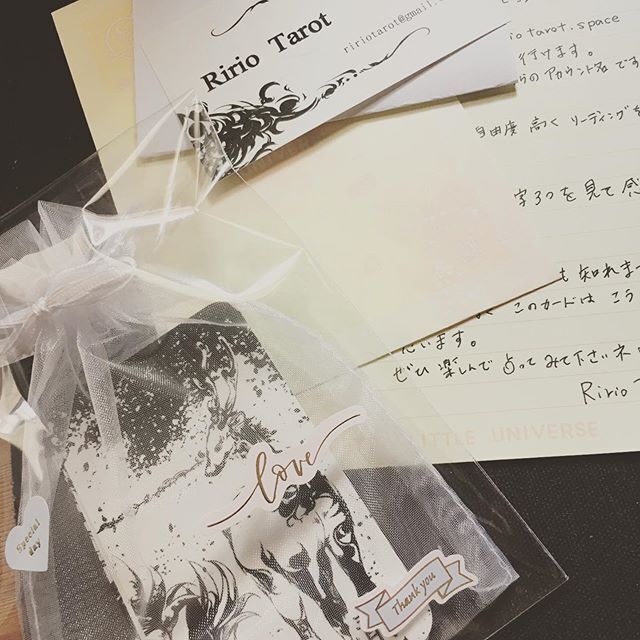 Ririo Tarot
ririotarot@gmail.
io tarot.space
行けます。
らの アカウント名 です
自由度 高く リーディング
字3つを見て 感
も 知れま
このカードは こう
います。
ぜひ 楽しんで 占って みて下さいネ
Ririo
LITTLE UNIVERSE
love
Special
day
Thank you